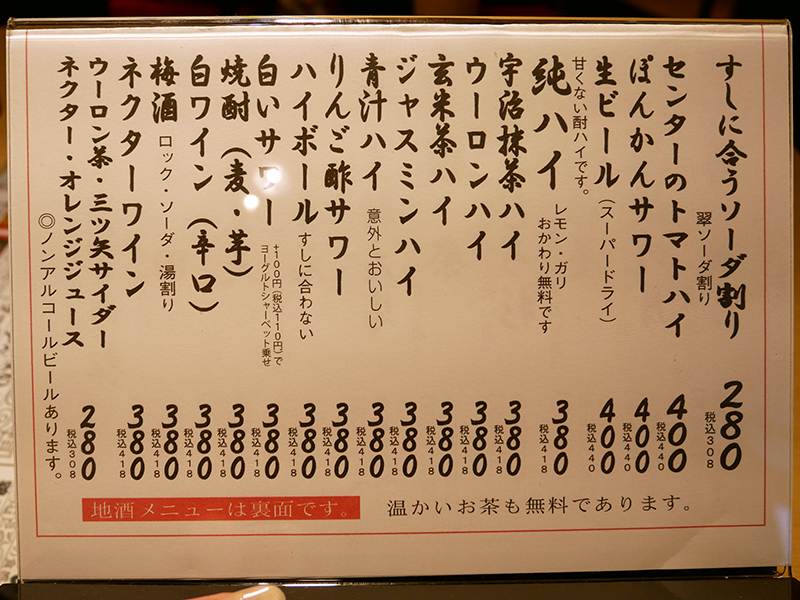 すしに合うソーダ割り
翠ソーダ割り
280
税込308
センターのトマトハイ
400
税込440
ぽんかんサワー
400
税込440
生ビール(スーパードライ)
400
税込440
甘くない酎ハイです。
純ハイ
レモン・ガリ
おかわり無料です
380
税込418
宇治抹茶ハイ
380
税込418
ウーロンハイ
380
税込418
玄米茶ハイ
380
税込418
ジャスミンハイ
380
税込418
青汁ハイ 意外とおいしい
380
税込418
りんご酢サワー
380
税込418
ハイボール すしに合わない
380
税込418
白いサワー
+100円(税込110円)で
ヨーグルトシャーベット乗せ
380
税込418
焼酎(麦・芋)
380
税込418
白ワイン(辛口)
380
税込418
梅酒 ロック・ソーダ・湯割り
380
税込418
ネクターワイン
380
税込418
ウーロン茶・三ツ矢サイダー
ネクター・オレンジジュース
280
税込308
◎ノンアルコールビールあります。
地酒メニューは裏面です。
温かいお茶も無料であります。